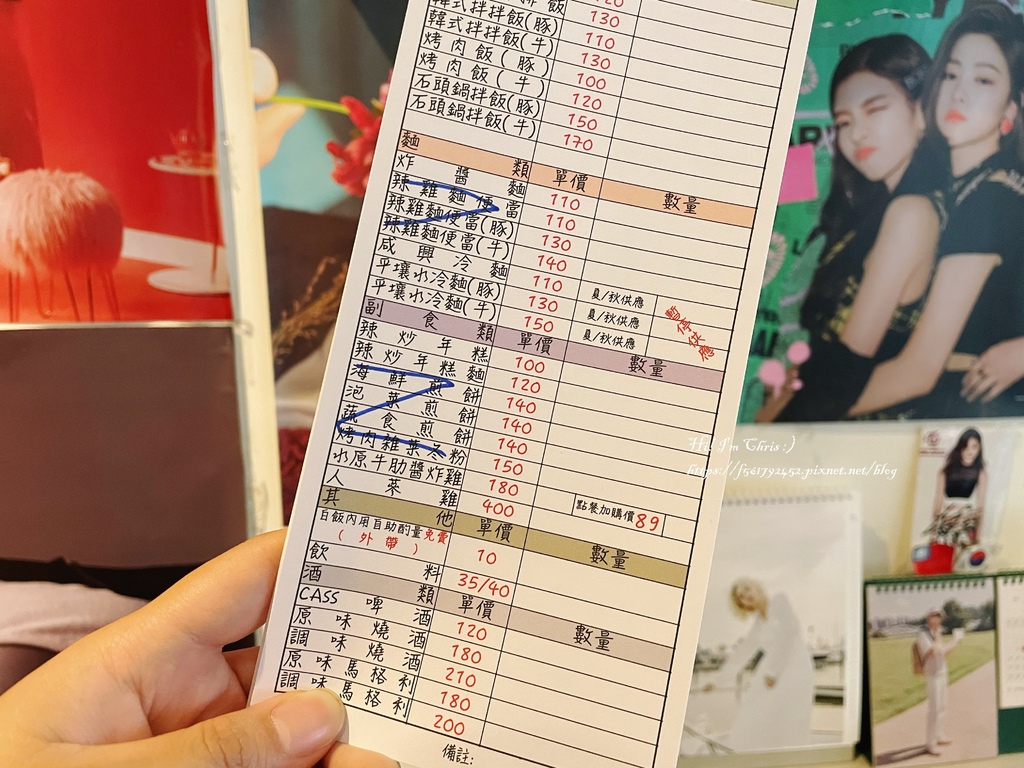 飯 130
韓式拌拌飯(豚) 110
韓式拌拌飯(牛) 130
烤肉飯(豚) 100
烤肉飯(牛) 120
石頭鍋拌飯(豚) 150
石頭鍋拌飯(牛) 170
麵類 單價 數量
炸醬麵 110
辣雞麵便當 110
辣雞麵便當(豚) 130
辣雞麵便當(牛) 140
咸興冷麵 110 夏/秋供應
平壤水冷麵(豚) 130 夏/秋供應
平壤水冷麵(牛) 150 夏/秋供應
暫停供應
副食類 單價 數量
辣炒年糕 100
辣炒年糕麵 120
海鮮煎餅 140
泡菜煎餅 140
蔬食煎餅 140
烤肉雜菜冬粉 150
水原牛肋醬炸雞 180
人蔘雞 400 點餐加購價89
其他 單價 數量
白飯內用自助酌量免費
(外帶) 10
飲料 35/40
酒類 單價 數量
CASS啤酒 120
原味燒酒 180
調味燒酒 210
原味馬格利 180
調味馬格利 200
備註:
Hi, I'm Chris :)
https://f561792452.pixnet.net/blog